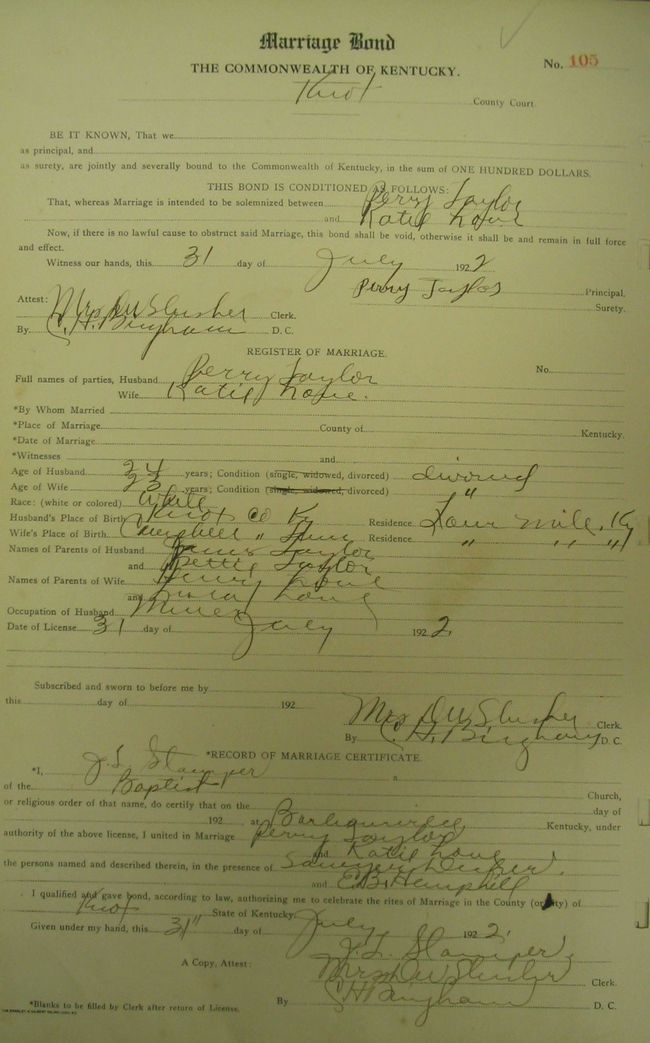 Marriage Bond
THE COMMONWEALTH OF KENTUCKY.
No. 105
Knox County Court
BE IT KNOWN, That we
as principal, and
as surety, are jointly and severally bound to the Commonwealth of Kentucky, in the sum of ONE HUNDRED DOLLARS.
THIS BOND IS CONDITIONED AS FOLLOWS:
That, whereas Marriage is intended to be solemnized between Perry Taylor
and Katie
Now, if there is no lawful cause to obstruct said Marriage, this bond shall be void, otherwise it shall be and remain in full force
and effect.
Witness our hands, this 31 day of July 1922
Perry Taylor Principal,
Surety.
Attest: Mrs D W Slusher Clerk.
By C. H. Bingham D. C.
REGISTER OF MARRIAGE.
No.
Full names of parties, Husband Perry Taylor
Wife Katie
*By Whom Married
*Place of Marriage County of Kentucky.
*Date of Marriage
*Witnesses and
Age of Husband 24 years; Condition (single, widowed, divorced) divorced
Age of Wife 23 years; Condition (single, widowed, divorced) "
Race: (white or colored) White
Husband's Place of Birth Knox Co Ky Residence. Four Mile, Ky
Wife's Place of Birth. Campbell " Tenn Residence " " "
Names of Parents of Husband Taylor
and Bettie Taylor
Names of Parents of Wife Henry
and
Occupation of Husband Miner
Date of License 31 day of July 1922.
Subscribed and sworn to before me by
this day of 192
Mrs D W Slusher Clerk.
By C. H. Bingham D. C.
*RECORD OF MARRIAGE CERTIFICATE.
*I, J. L. Stamper a
of the Baptist Church,
or religious order of that name, do certify that on the day of
192 at Barbourville Kentucky, under
authority of the above license, I united in Marriage Perry Taylor
and Katie
the persons named and described therein, in the presence of
and E. B. Hemphill
I qualified and gave bond, according to law, authorizing me to celebrate the rites of Marriage in the County (or City) of
Knox State of Kentucky.
Given under my hand, this 31" day of July, 1922.
J. L. Stamper
A Copy, Attest: Mrs D W Slusher Clerk.
By C H Bingham D. C.
*Blanks to be filled by Clerk after return of License.